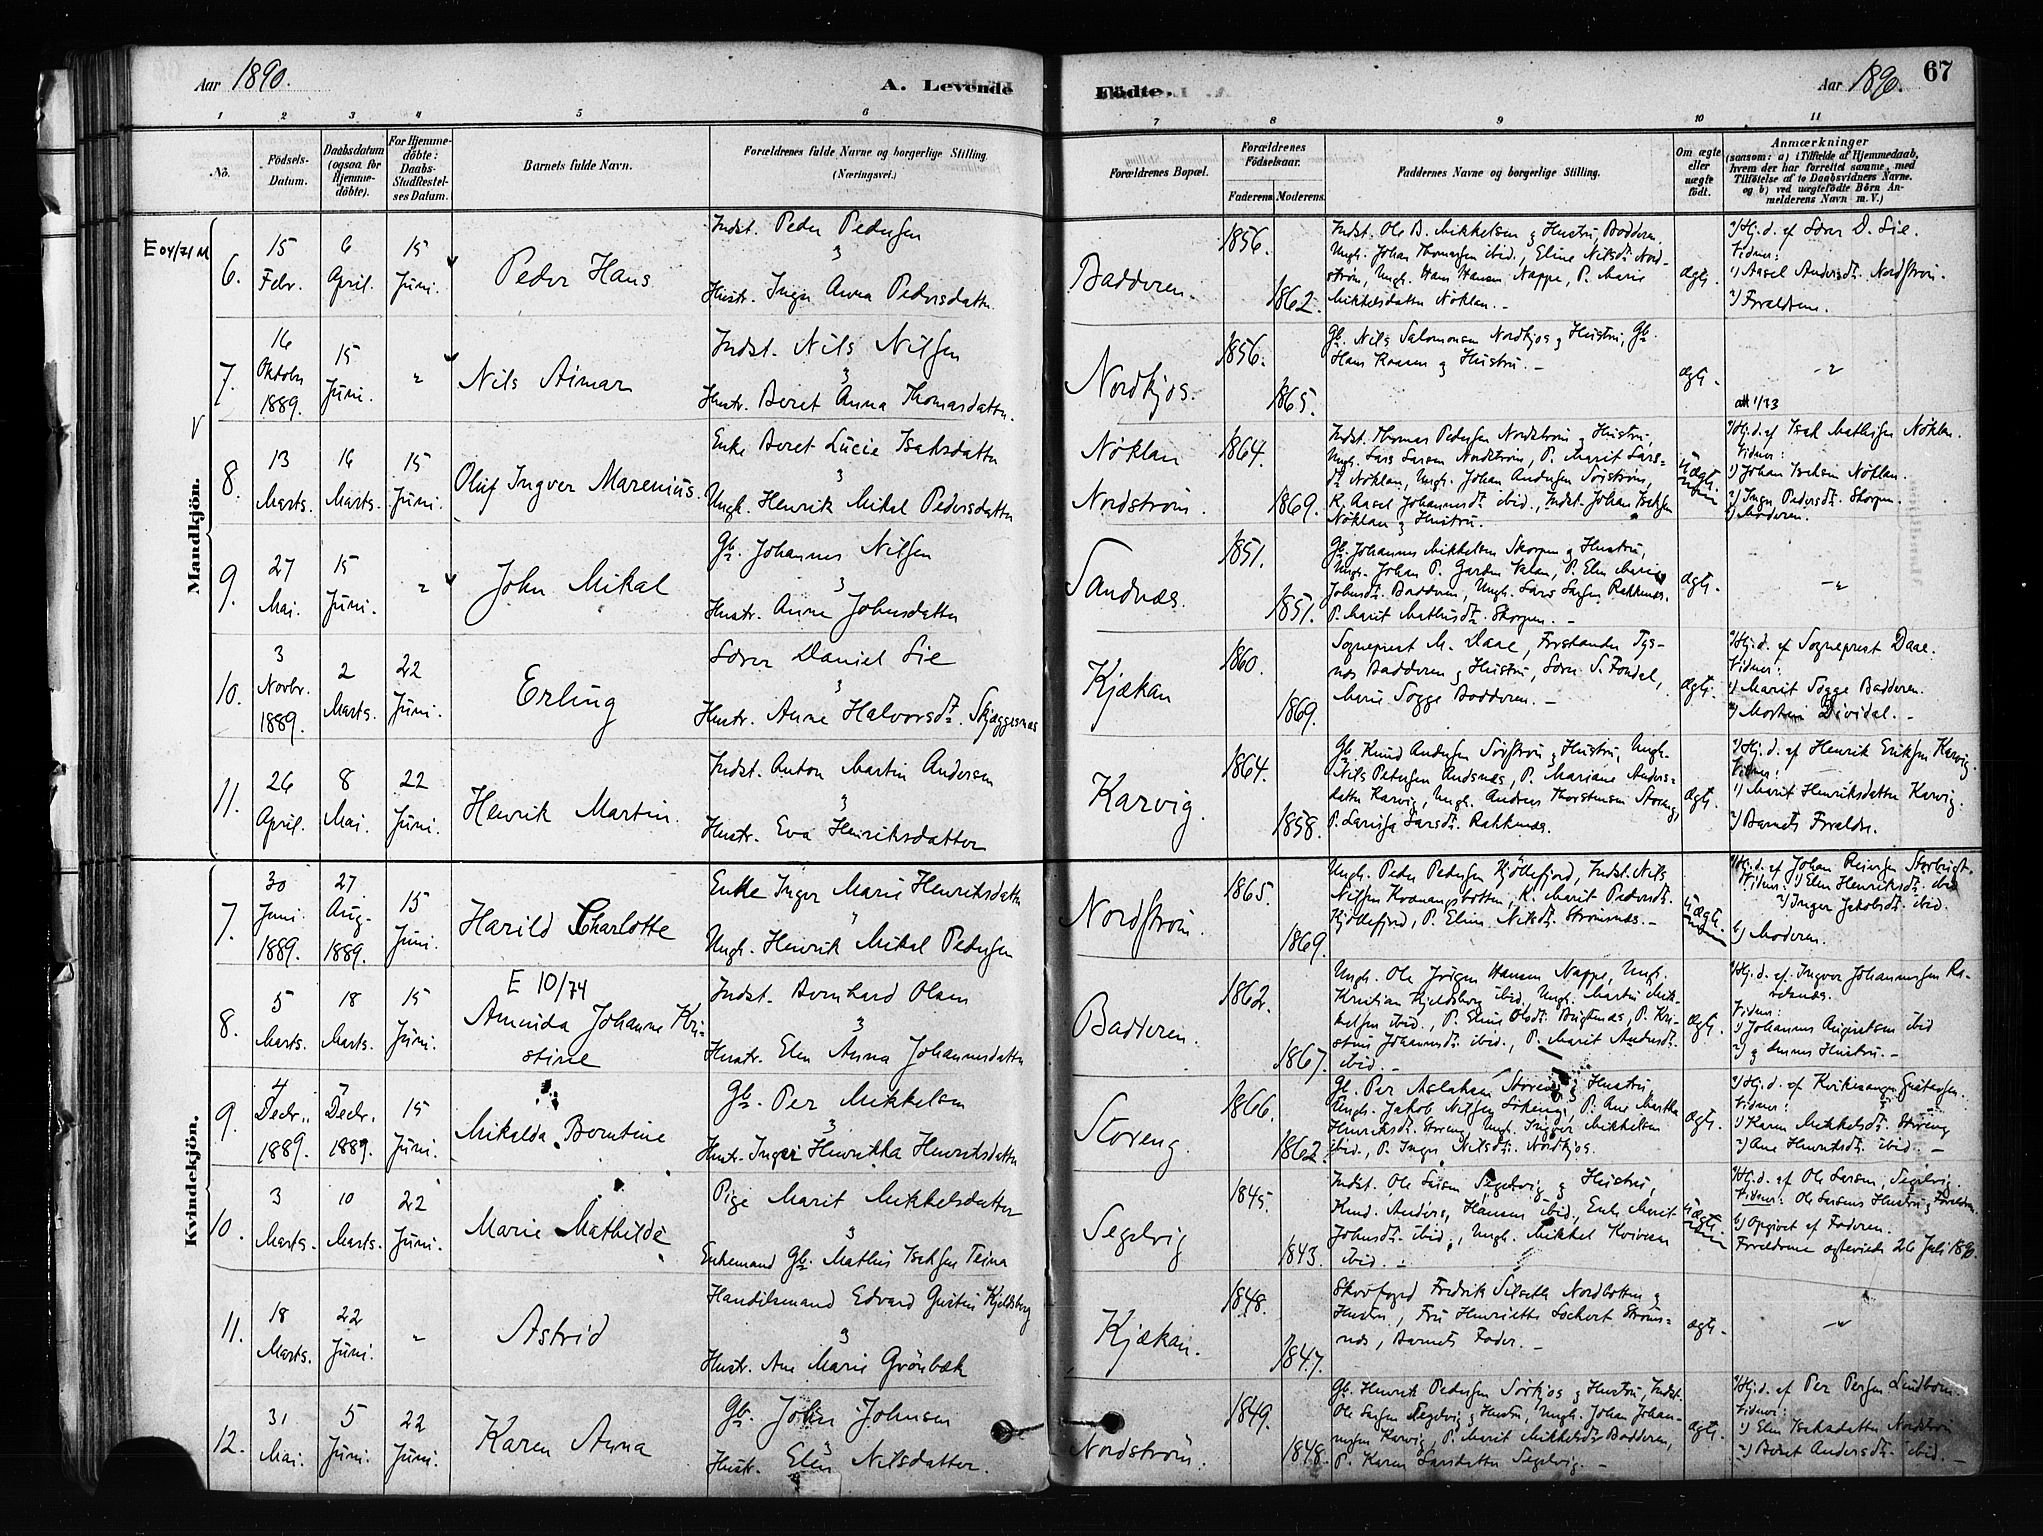 Aar 1890.
A. Levende
Födte.
Aar 1890.
67
1 2 3 4 5 6 7 8 9 10 11
No.
Födsels-
Datum.
Daabsdatum
(ogsaa for
Hjemme-
döbte).
For Hjemme-
döbte:
Daabs-
Stadfæstel-
ses Datum.
Barnets fulde Navn.
Forældrenes fulde Navne og borgerlige Stilling
(Næringsvei.)
Forældrenes Bopæl.
Forældrenes
Födselsaar.
Faderens
Moderens.
Faddernes Navne og borgerlige Stilling.
Om ægte
eller
uægte
födt.
Anmærkninger
(saasom: a) i Tilfælde af Hjemmedaab,
hvem der har forrettet samme, med
Tilföielse af to Daabsvidners Navne,
og b) ved uægtefödte Börn An-
melderens Navn m. V.)
Mandkjön.
E 04/71 M
6.
15
Febr.
6
April.
15
Juni.
Peder Hans
Indst. Peder Pedersen
Hustr. Inger Anna Pedersdatter
Badderen.
1856.
1862.
Indst. Ole B. Mikkelsen & Hustru, Badderen.
Ungk. Johan Thomassen ibid., Eline Nilsdtr. Nord-
ström, Ungk. Hans Hansen Nappe, P. Marie
Mikkelsdatter Nöklan. -
ægte.
a) Hj. d. af Lærer D. Lie.
Vidner:
1) Aasel Andersdtr. Nordström.
2) Forældrene.
7.
16
Oktober
1889.
15
Juni.
"
Nils Aimar
Indst. Nils Nilsen
Hustr. Beret Anna Thomasdatter.
Nordkjos.
1856.
1865.
Gb. Nils Salomonsen Nordkjos & Hustru, Gb.
Hans Hansen & Hustru. -
ægte.
"
att 1/33
8.
13
Marts.
16
Marts.
15
Juni.
Oluf Ingver Marenius.
Enke Beret Lucie Isaksdatter
Ungk. Henrik Mikal Pedersdatter
Nöklan
Nordström.
1864.
1869.
Indst. Thomas Pedersen Nordström & Hustru,
Ungk. Lars Larsen Nordström, P. Marit Lars-
dtr. Nöklan, Ungk. Johan Andersen Sörström,
K. Aasel Johannesdtr. ibid., Indst. Johan Isaksen
Nöklan & Hustru.
Uægte.
a) Hj. d. af Isak Mathisen Nöklan.
Vidner:
1) Johan Isaksen Nöklan.
2) Inger Pedersdtr. Skorpen.
b) Moderen.
9.
27
Mai.
15
Juni.
"
John Mikal
Gb. Johannes Nilsen
Hustr. Anne Johnsdatter
Sandnæs.
1851.
1851.
Gb. Johannes Mikkelsen Skorpen & Hustru,
Ungk. Johan P. Garden Valan, P. Elen Marie
Johnsdtr. Badderen, Ungk. Lars Larsen Rakkenæs.
P. Marit Mathisdtr. Skorpen. -
ægte.
"
10.
3
Novbr.
1889.
2
Marts.
22
Juni.
Erling
Lærer Daniel Lie
Hustr. Anne Halvorsdtr. Skjæggesnæs
Kjækan
1860.
1869.
Sogneprest M. Daae, Forstander Tys-
næs Badderen & Hustru, Lærer S. Fondal,
Marie Sogge Badderen. -
ægte.
a) Hj. d. af Sogneprest Daae.
Vidner:
1) Marit Sogge Badderen.
2) Morten Dividal. -
11.
26
April.
8
Mai.
22
Juni.
Henrik Martin.
Indst. Anton Martin Andersen
Hustr. Eva Henriksdatter
Karvig.
1864.
1858.
Gb. Knud Andersen Sörström & Hustru, Ungk.
Nils Petersen Andsnæs, P. Mariane Anders-
datter Karvig, Ungk. Andreas Thorstensen Storeng,
P. Larisa Larsdtr. Rakkenæs.
ægte.
a) Hj. d. af Henrik Eriksen Karvig.
Vidner:
1) Marit Henriksdatter Karvig.
2) Barnets Forældre.
Kvindekjön.
7.
30
Juni
1889.
27
Aug.
1889.
15
Juni.
Harild Charlotte
Enke Inger Marie Henriksdatter
Ungk. Henrik Mikal Pedersen
Nordström.
1865.
1869.
Ungk. Peder Pedersen Kjöllefjord, Indst. Nils
Nilsen Kvænangsbotten, K. Marit Pedersdtr.
Kjöllefjord, P. Eline Nilsdtr. Strömsnæs. -
Uægte.
a) Hj. d. af Johan Reiersen Storbugt.
Vidner: 1) Elen Henriksdtr. ibid
2) Inger Jakobsdtr. ibid.
b) Moderen.
E 10/74
8.
5
Marts.
18
Marts.
15
Juni.
Amunda Johanne Kri-
stine
Indst. Bernhard Olsen
Hustr. Elen Anna Johannesdatter
Badderen.
1862.
1867.
Ungk. Ole Jörgen Hansen Nappe, Ungk.
Kristian Kjeldsberg ibid., Ungk. Martin Mik-
kelsen ibid., P. Eline Olsdtr. Bugtenæs, P. Kri-
stine Johannesdtr. ibid., P. Marit Andersdtr.
ibid. -
ægte.
a) Hj. d. af Ingver Johannessen
Vidner:
1) Johannes Augustsen ibid
2) & dennes Hustru. -
9.
4
Decbr.
1889.
7
Decbr.
1889.
15
Juni.
Mikalda Berntine
Gb. Per Mikkelsen
Hustr. Inger Henrikka Henriksdatter
Storeng.
1866.
1862.
Gb. Per Aslaksen Storeng & Hustru,
Ungk. Jakob Nilsen Sökeng, P. Ane Martha
Henriksdtr. Storeng, Ungk. Ingver Mikkelsen
ibid., P. Inger Nilsdtr. Nordkjos.
ægte.
Vidner:
1) Karen Mikkelsdtr. Storeng
2) Ane Henriksdtr. ibid. -
10.
3
Marts.
10
Marts.
22
Juni.
Marie Mathilde
Pige Marit Mikkelsdatter
Enkemand Gb. Mathis Isaksen
Segelvig
1845.
1843.
Indst. Ole Larsen Segelvig & Hustru,
Knud Anders, Hansen ibid., Enke Marit
Johnsdtr. ibid., Ungk. Mikkel Kvivesen
ibid. -
Uægte.
a) Hj. d. af Ole Larsen, Segelvig.
Vidner: Ole Larsens Hustru & Forældrene.
b) Opgivet af Faderen.
Forældrene ægteviede 26 Juli 1890.
11.
18
Marts.
22
Juni.
"
Astrid
Handelsmand Edvard Gustav Kjeldsberg
Hustr. Ane Marie Grönbæk
Kjækan.
1848.
1847.
Skovfoged Fredrik Selseth Nordbotten &
Hustru, Fru Henriette Lockert Ströms-
næs, Barnets Fader. -
ægte.
"
12.
31
Mai.
5
Juni.
22
Juni.
Karen Anna
Gb. John Johnsen
Hustr. Elen Nilsdatter.
Nordström.
1849.
1848.
Gb. Henrik Pedersen Sörkjos & Hustru, Indst.
Ole Larsen Segelvig & Hustru, Ungk. Johan Johan-
nesen Karvig, P. Marit Mikkelsdtr. Badderen,
P. Karen Larsdatter Segelvig. -
ægte.
a) Hj. d. af Per Persen Lindbom.
Vidner:
1) Elen Isaksdatter Nordström
2) Beret Andersdtr. ibid. -